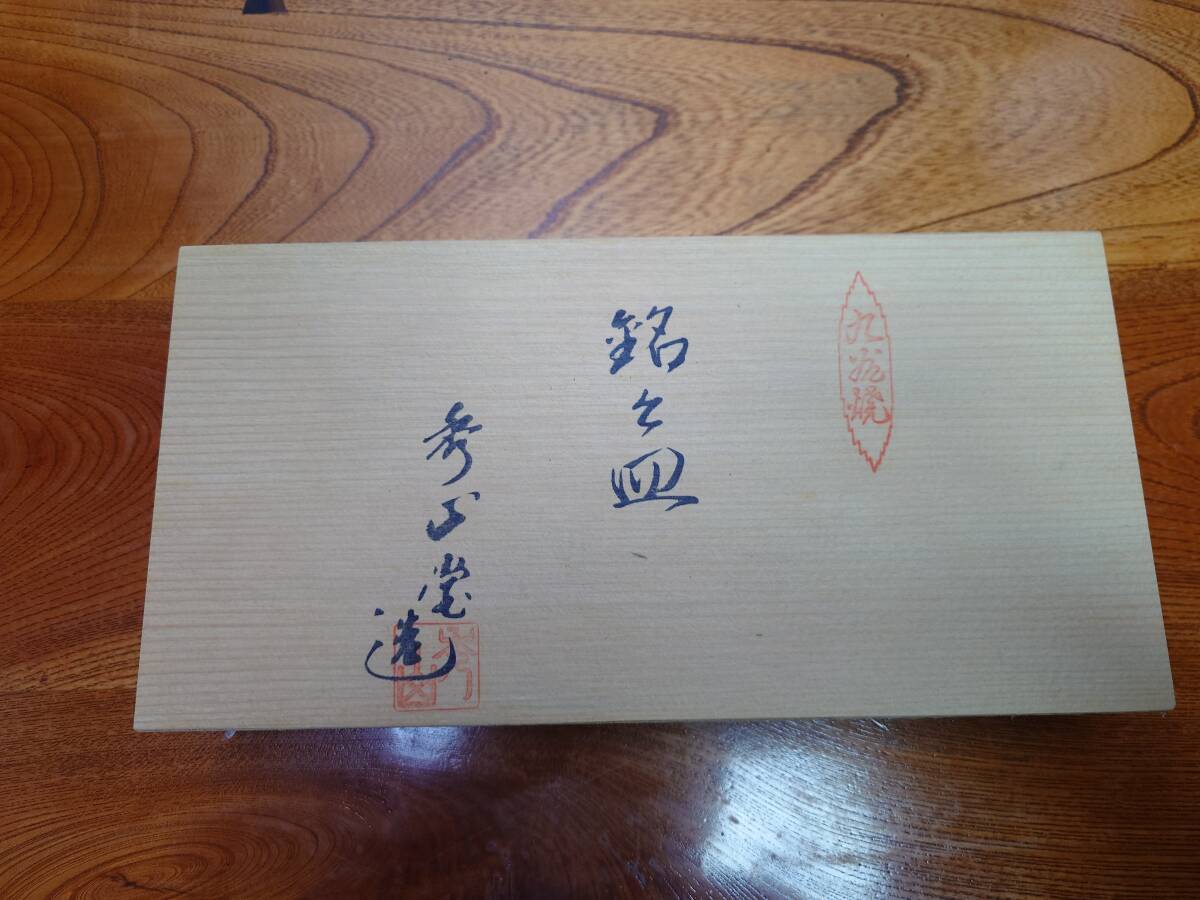 九谷焼
銘々皿
秀山堂造
秀山